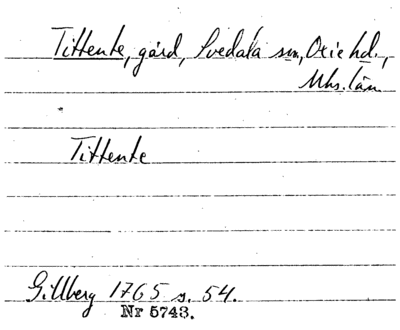 Tittente, gård, Svedala sn, Oxie hd.,
Mhs. län
Tittente
Gillberg 1765 s. 54.
Nr 5743.